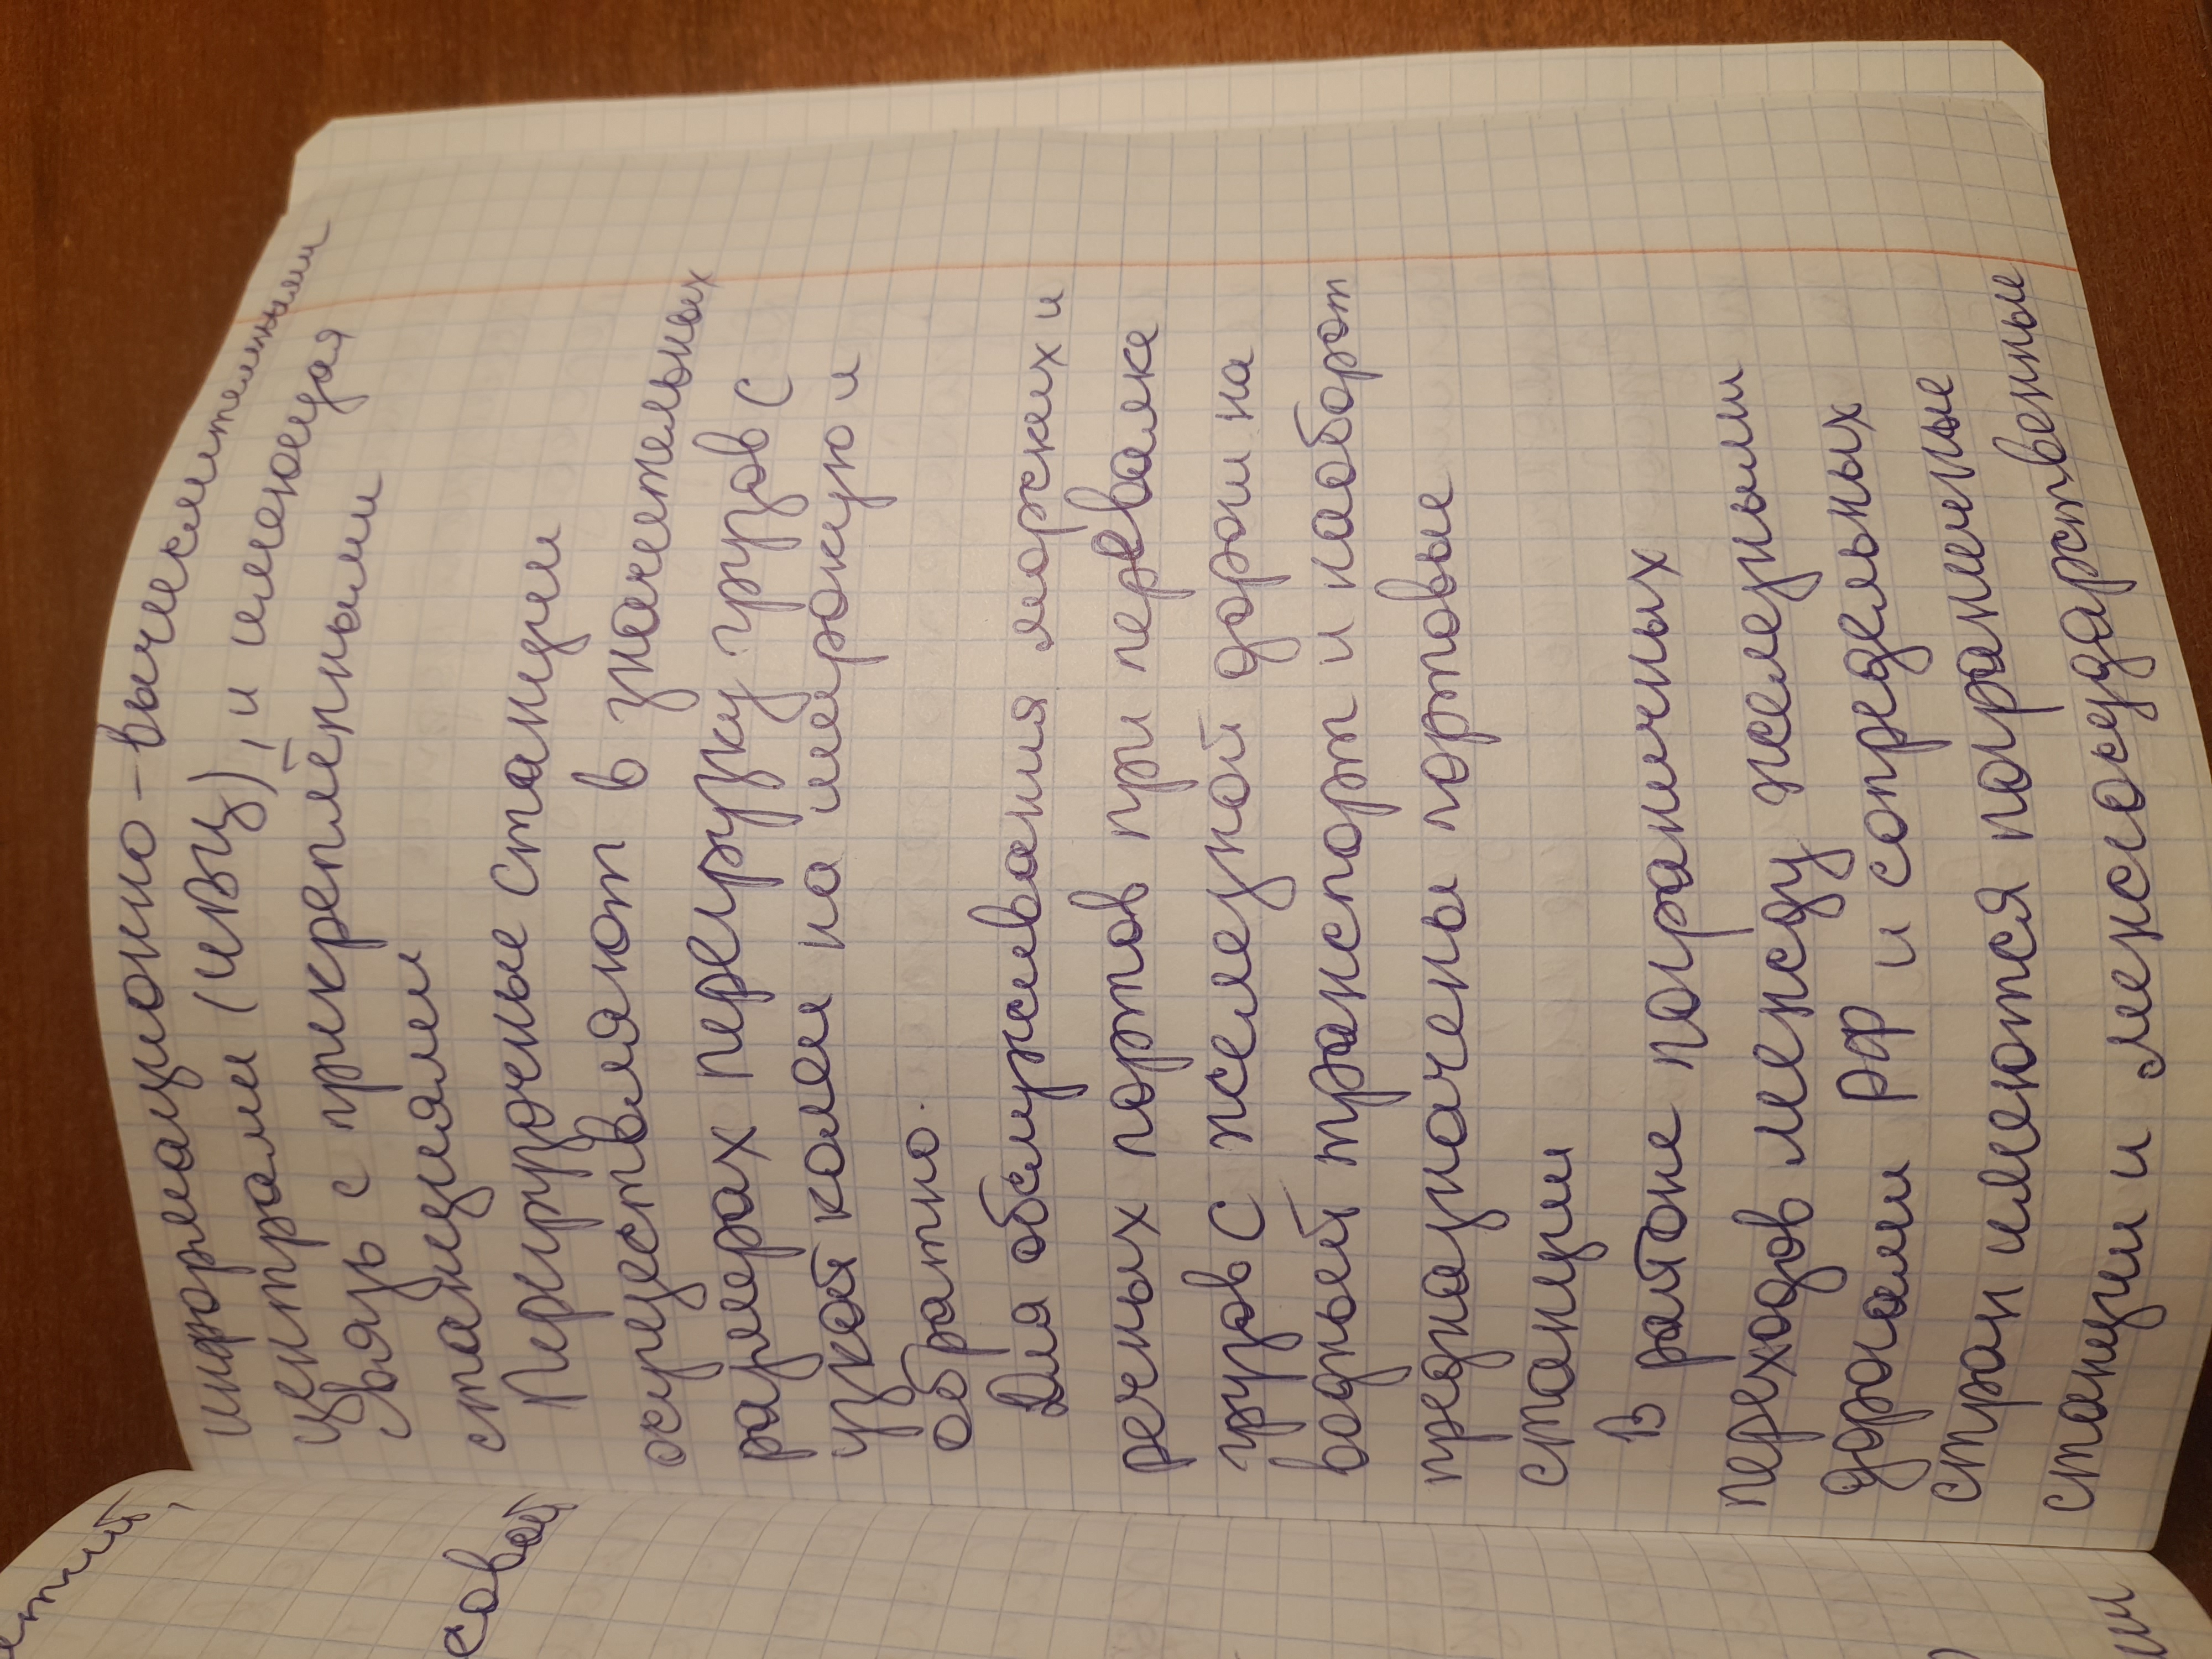 информационно-вычеслительными
центрами (ИВЦ), и имеющая
связь с прикреплёнными
станциями
Перегрузочные станции
осуществляют в значительных
размерах перегрузку грузов с
узкой колеи на широкую и
обратно.
Для обслуживания морских и
речных портов при первалке
грузов с железной дороги на
водный транспорт и наоборот
предназначены портовые
станции
В районе пограничных
переходов между железными
дорогами РФ и сопредельных
стран имеются пограничные
станции и межгосударственные
совой